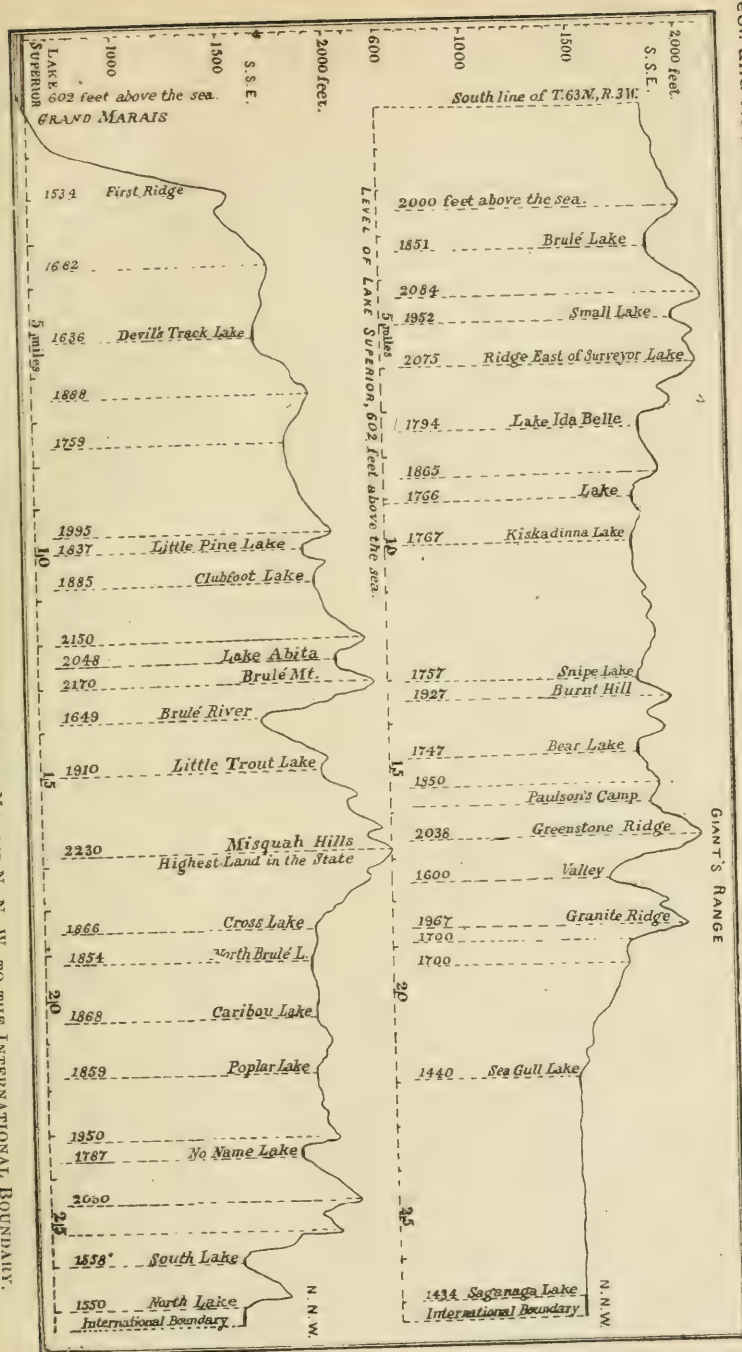 LAKE SUPERIOR
602 feet above the sea.
GRAND MARAIS
1000
1500
2000 feet.
S.S.E.
1534 First Ridge
1682
1636 Devil's Track Lake
5 miles
1888
1759
1995
1837 Little Pine Lake
10
1885 Clubfoot Lake
2150
2048 Lake Abita
2170 Brulé Mt.
1649 Brulé River
1910 Little Trout Lake
15
2230 Misquah Hills
Highest Land in the State
1866 Cross Lake
1854 North Brulé L.
20
1868 Caribou Lake
1859 Poplar Lake
1950
1787 No Name Lake
2050
25
1558 South Lake
1550 North Lake
International Boundary
N.N.W.
600
1000
1500
2000 feet.
S.S.E.
South line of T.63N., R.3W.
LEVEL OF LAKE SUPERIOR, 602 feet above the sea.
2000 feet above the sea.
1851 Brulé Lake
2084
1952 Small Lake
5 miles
2075 Ridge East of Surveyor Lake
1794 Lake Ida Belle
1865
1766 Lake
10
1767 Kiskadinna Lake
1757 Snipe Lake
1927 Burnt Hill
1747 Bear Lake
15
1850
Paulson's Camp
2038 Greenstone Ridge
1600 Valley
GIANT'S RANGE
1967 Granite Ridge
1700
1700
20
1440 Sea Gull Lake
25
1434 Saganaga Lake
International Boundary
N.N.W.
N. N. W. TO THE INTERNATIONAL BOUNDARY.